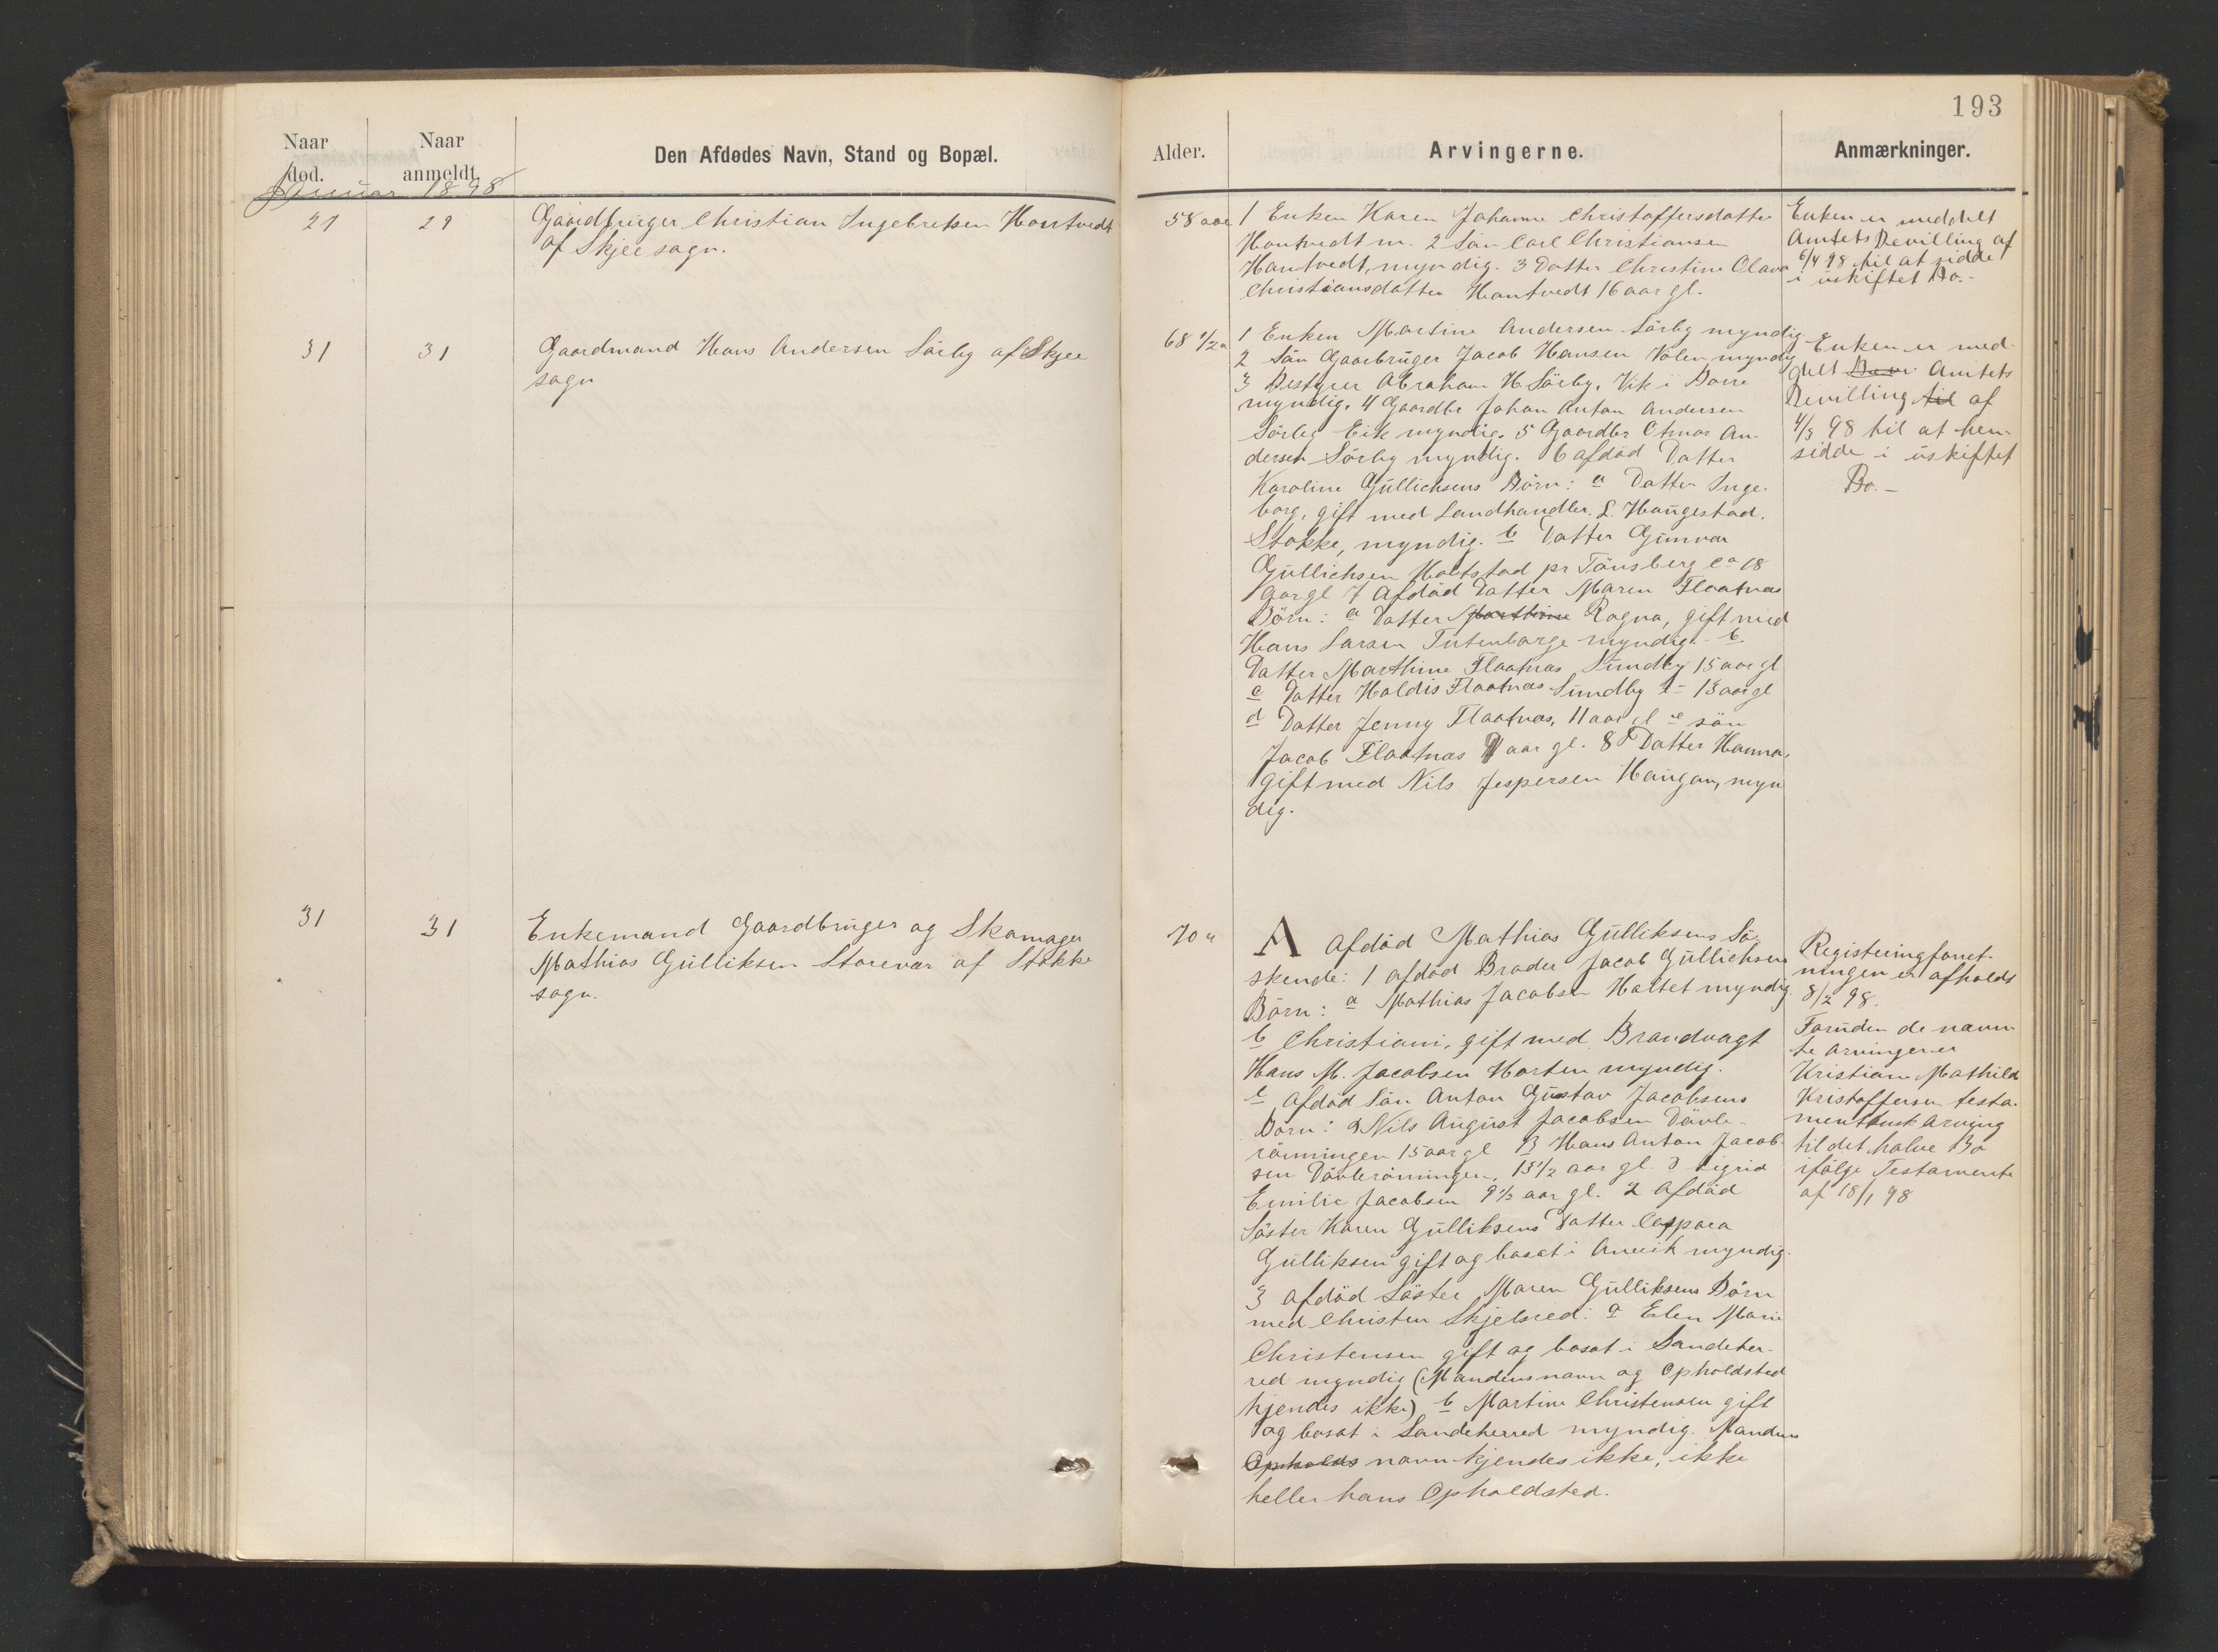 193
Naar
død.
Naar
anmeldt.
Den Afdødes Navn, Stand og Bopæl.
Alder.
Arvingerne.
Anmærkninger.
Januar 1898
21
29
Gaardbruger Christian Ingebretsen Hontvedt
af Skjee sogn.
58 aar
1 Enken Karen Johanne Christoffersdatter
Hontvedt m. 2 Sön Carl Christiansen
Hontvedt, myndig. 3 Datter Christine Olava
Christiansdatter Hontvedt 16 aar gl.
Enken er meddelt
Amtets Bevilling af
6/4 98 til at sidde
i uskiftet Bo.-
31
31
Gaardmand Hans Andersen Sörby af Skjee
sogn
68 1/2 a
1 Enken Martine Andersen Sörby myndig
2 Sön Gaardbruger Jacob Hansen Volen myndig
3 Bestyrer Abraham H. Sörby, Vik i Borre
myndig. 4 Gaardbr Johan Anton Andersen
Sörby Eik myndig. 5 Gaardbr Otmar An-
dersen Sörby myndig. 6 afdöd Datter
Karoline Gullichsens Börn: a Datter Inge-
borg, gift med Landhandler L. Haugestad,
Stokke, myndig. b Datter Gunvor
Gullichsen Holtstad pr Tönsberg ca 18
aar gl 7 Afdöd Datter Maren Flaatnæs
Börn: a Datter Marthine Ragna, gift med
Hans Larsen Tutenborge myndig.- b
Datter Marthine Flaatnæs Sundby 15 aar gl
c Datter Haldis Flaatnæs Sundby 13 aar gl
d Datter Jenny Flaatnæs, 11 aar gl e sön
Jacob Flaatnæs 9 aar gl. 8 Datter Hanna,
gift med Nils Jespersen Haugan, myn
dig.
Enken er med-
delt Amtets
Bevilling til af
4/3 98 til at hen-
sidde i uskiftet
Bo.-
31
31
Enkemand Gaardbruger og Skomager
Mathias Gulliksen Storevar af Stokke
sogn.
70 a
A Afdöd Mathias Gulliksens Sö-
skende: 1 afdöd Broder Jacob Gullichsens
Börn: a Mathias Jacobsen Holtet myndig
b Christiani, gift med Brandvagt
Hans M. Jacobsen Horten myndig.
c Afdöd Sön Anton Gustav Jacobsens
Börn: Nils August Jacobsen Dövle-
rönningen 15 aar gl Hans Anton Jacob-
sen Dövlerönningen, 13 1/2 aar gl. Sigrid
Emilie Jacobsen 9 1/2 aar gl. 2 Afdöd
Söster Karen Gulliksens Datter Caspara
Gulliksen gift og bosat i myndig.
3 Afdöd Söster Maren Gulliksens Börn
med Christen Skjelsred: a Elen Marie
Christensen gift og bosat i Sandeher-
red myndig (Mandens navn og Opholdsted
kjendes ikke) b Martine Christensen gift
og bosat i Sandeherred myndig. Mandens
Opholds navn kjendes ikke, ikke
heller hans Opholdsted.
Registreringforret-
ningen er afholdt
8/2 98.
Foruden de nævn-
te arvinger er
Kristian Mathild
Kristoffersen testa-
mentarisk Arving
til det halve Bo
ifölge Testamente
af 18/1 98